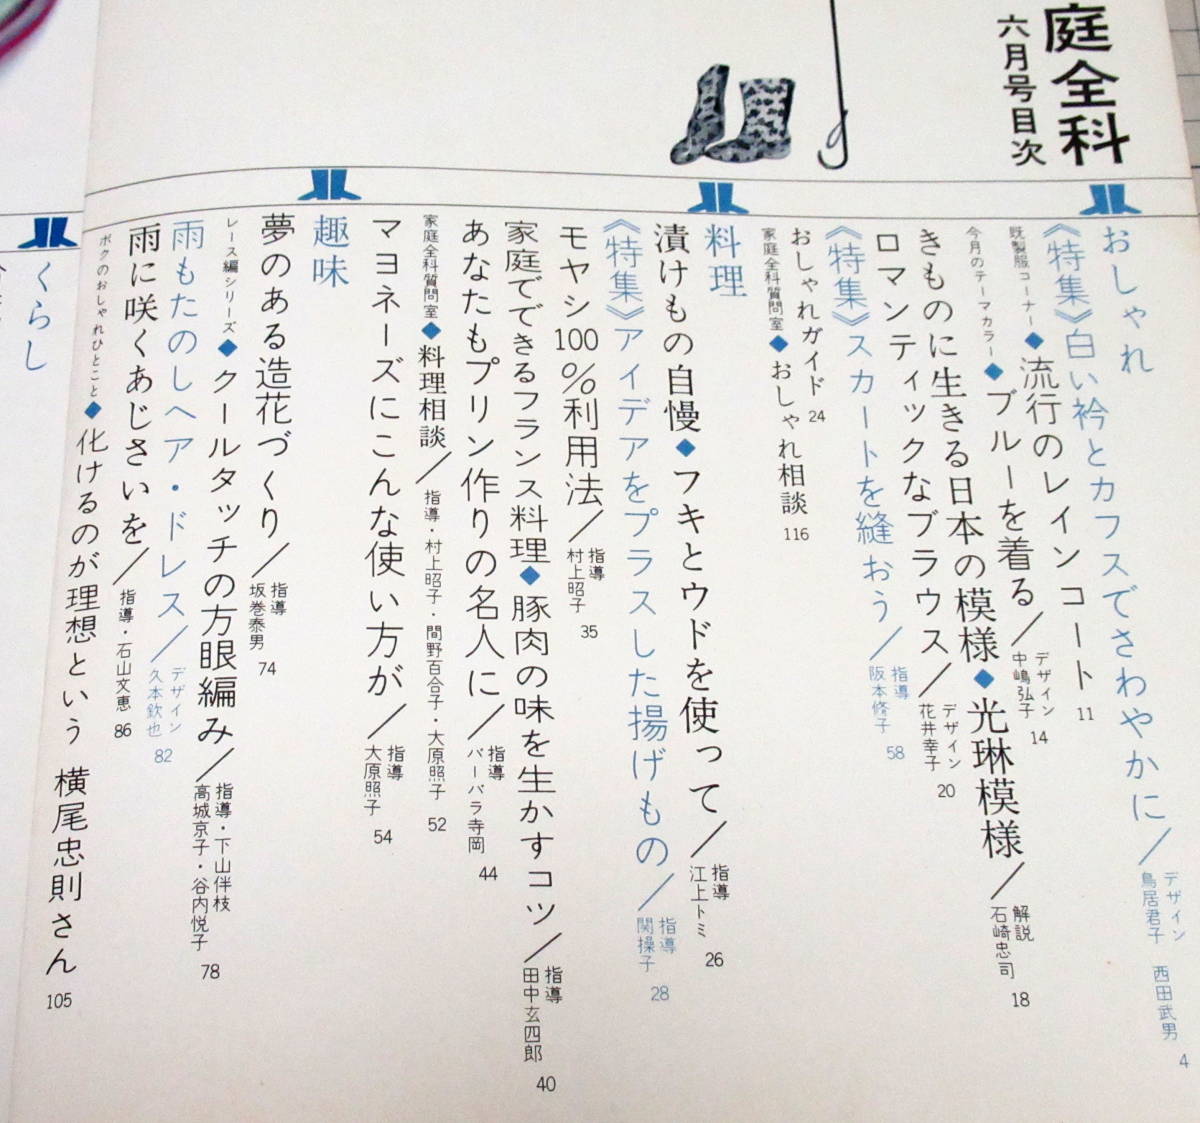 庭全科
六月号目次
おしゃれ
《特集》白い衿とカフスでさわやかに／デザイン 鳥居君子 西田武男 4
既製服コーナー◆流行のレインコート 11
今月のテーマカラー◆ブルーを着る／デザイン 中嶋弘子 14
きものに生きる日本の模様◆光琳模様／解説 石崎忠司 18
ロマンティックなブラウス／デザイン 花井幸子 20
《特集》スカートを縫おう／指導 阪本脩子 58
おしゃれガイド 24
家庭全科質問室◆おしゃれ相談 116
料理
漬けもの自慢◆フキとウドを使って／指導 江上トミ 26
《特集》アイデアをプラスした揚げもの／指導 関操子 28
モヤシ100％利用法／指導 村上昭子 35
家庭でできるフランス料理◆豚肉の味を生かすコツ／指導 田中玄四郎 40
あなたもプリン作りの名人に／指導 バーバラ寺岡 44
家庭全科質問室◆料理相談／指導・村上昭子・間野百合子・大原照子 52
マヨネーズにこんな使い方が／指導 大原照子 54
趣味
夢のある造花づくり／指導 坂巻泰男 74
レース編シリーズ◆クールタッチの方眼編み／指導・下山伴枝 高城京子・谷内悦子 78
雨もたのしヘア・ドレス／デザイン 久本欽也 82
雨に咲くあじさいを／指導・石山文恵 86
ボクのおしゃれひとこと◆化けるのが理想という 横尾忠則さん 105
くらし